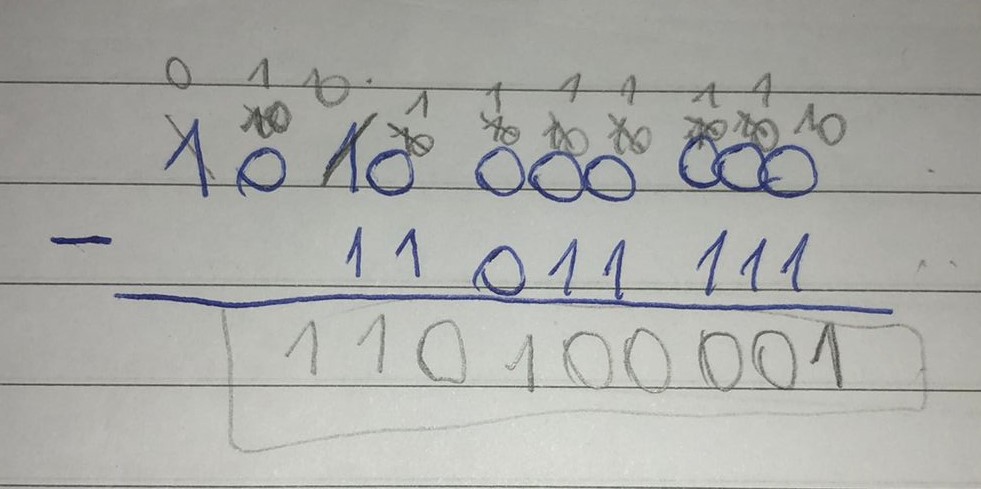 0 1 10 1 1 1 1 1 1
10 10 10 10 10 10 10 10
10 10 000 000
- 11 011 111
110 100 001